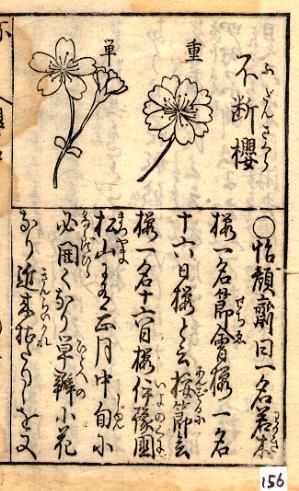 不断櫻
ふだんさくら
重
単
〇怡顔齋曰一名若木
櫻一名節會櫻一名
十六日櫻と云按節会
櫻一名十六日櫻伊豫國
松山 正月中旬に
必開くなり単瓣小花
なり近来 を又
156